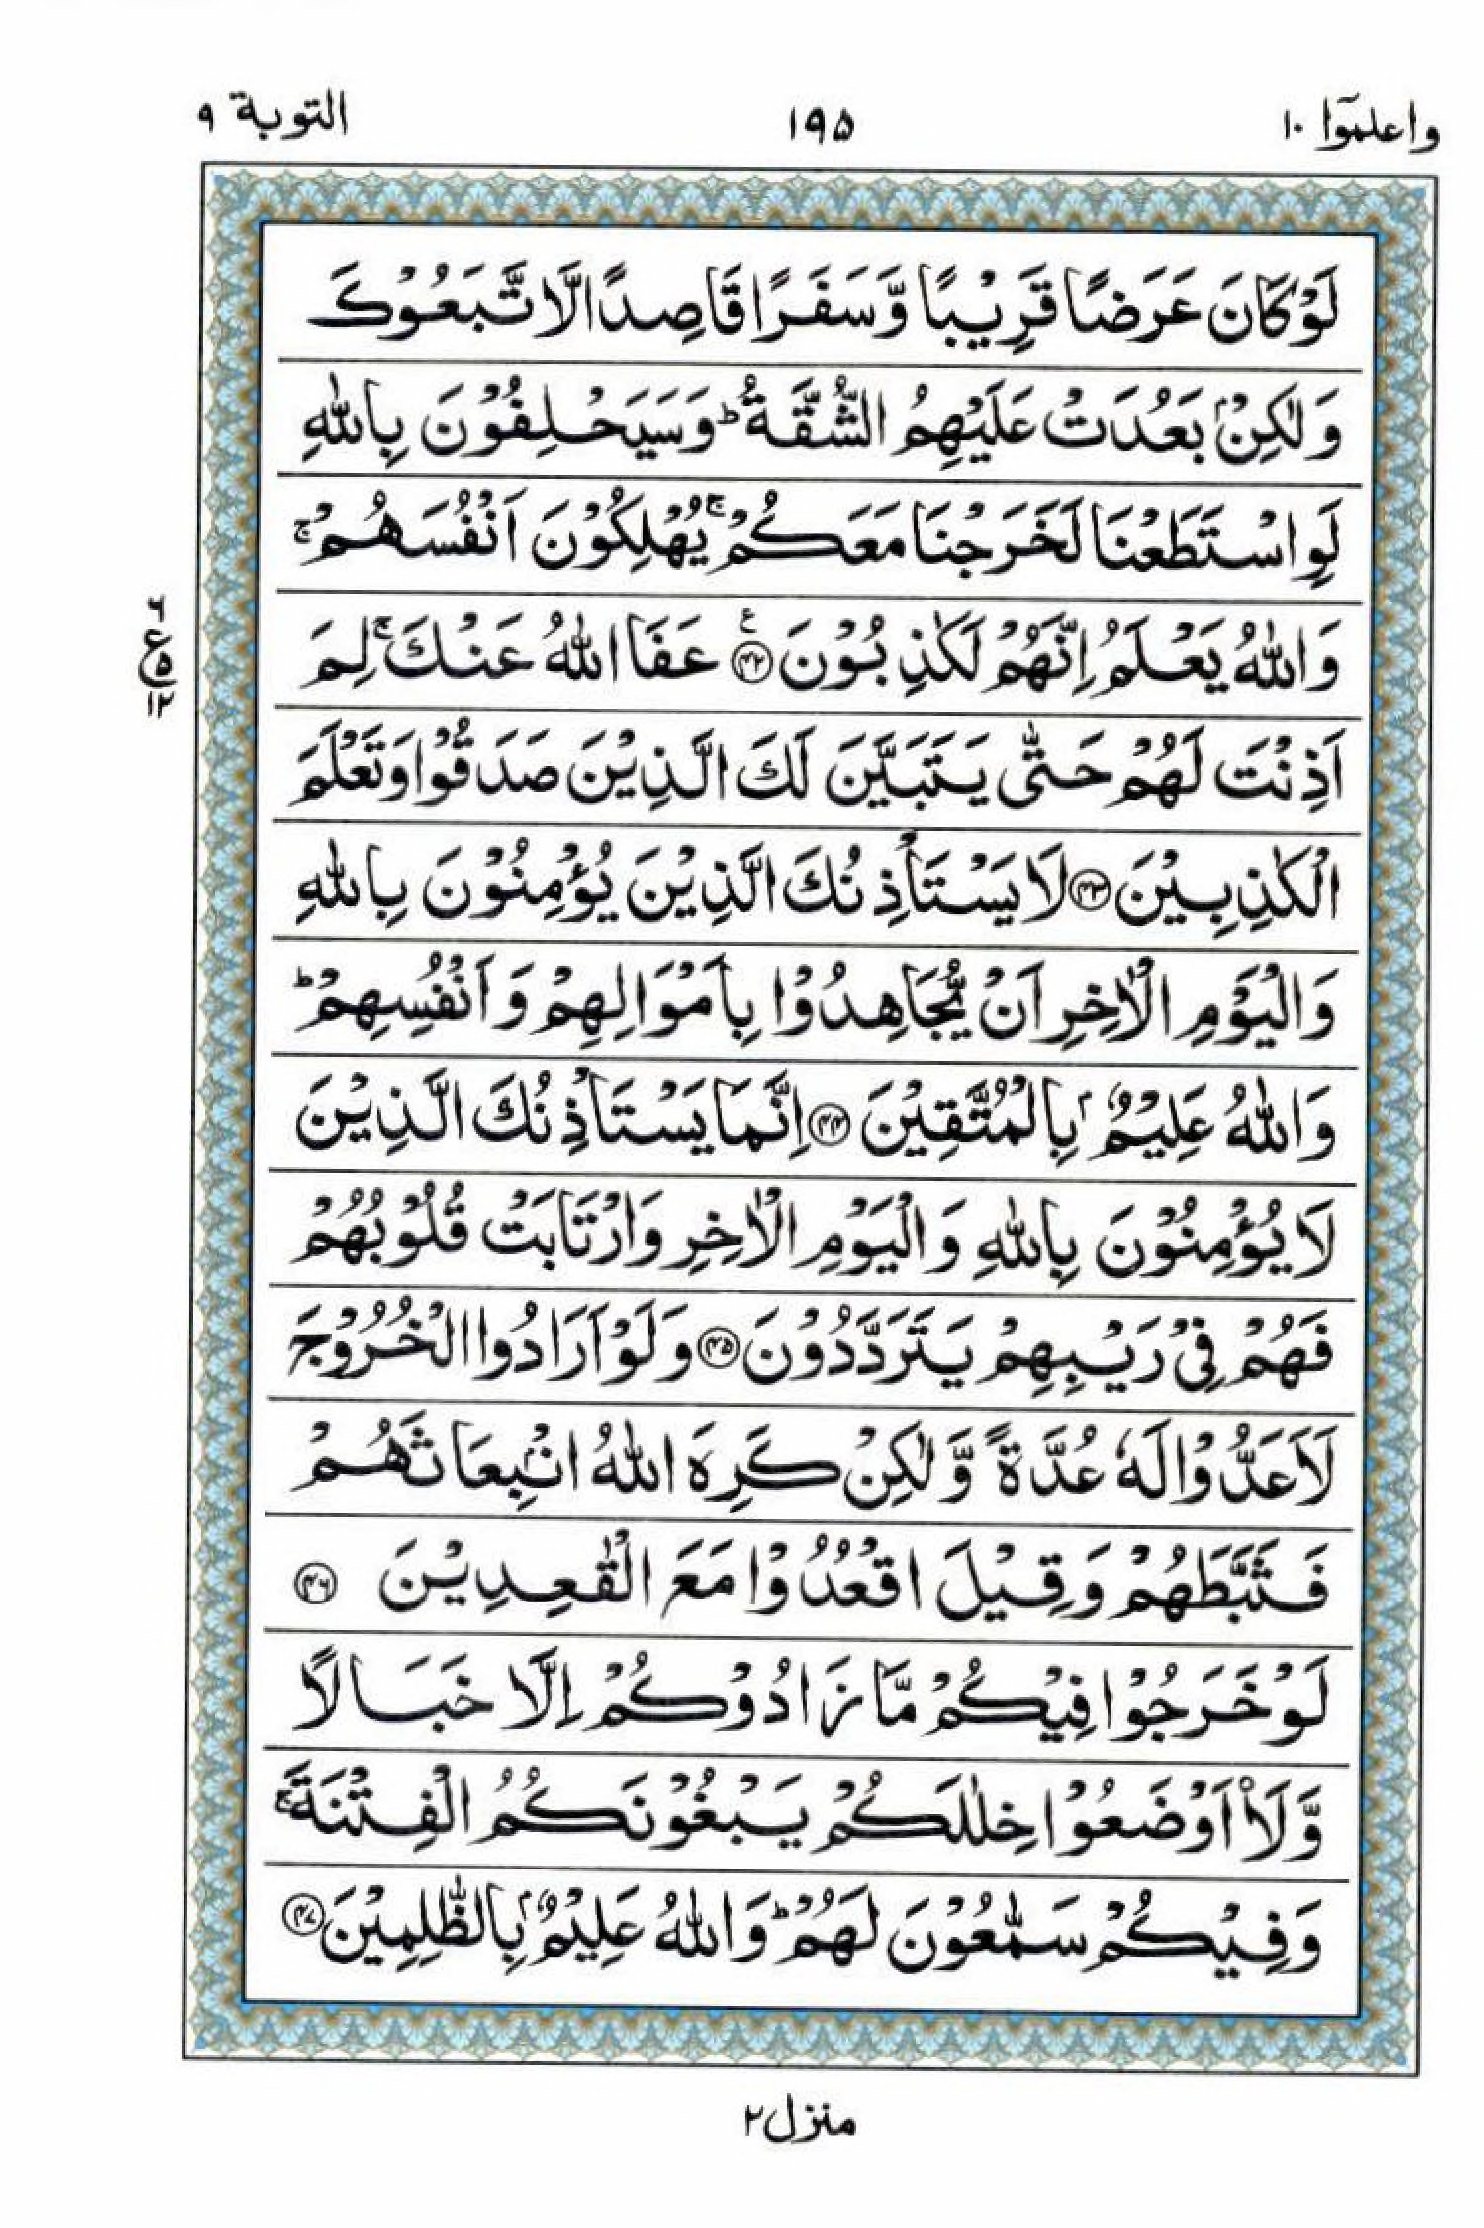 واعلموٓا ١٠
١٩٥
التوبة ٩
لَوْ كَانَ عَرَضًا قَرِيْبًا وَّسَفَرًا قَاصِدًا لَّاتَّبَعُوْكَ
وَلٰكِنْۢ بَعُدَتْ عَلَيْهِمُ الشُّقَّةُ ؕ وَسَيَحْلِفُوْنَ بِاللّٰهِ
لَوِ اسْتَطَعْنَا لَخَرَجْنَا مَعَكُمْ ۚ يُهْلِكُوْنَ اَنْفُسَهُمْ ۚ
وَاللّٰهُ يَعْلَمُ اِنَّهُمْ لَكٰذِبُوْنَ ﴿۴۲﴾ ع عَفَا اللّٰهُ عَنْكَ ۚ لِمَ
اَذِنْتَ لَهُمْ حَتّٰى يَتَبَيَّنَ لَكَ الَّذِيْنَ صَدَقُوْا وَتَعْلَمَ
الْكٰذِبِيْنَ ﴿۴۳﴾ لَا يَسْتَاْذِنُكَ الَّذِيْنَ يُؤْمِنُوْنَ بِاللّٰهِ
وَالْيَوْمِ الْاٰخِرِ اَنْ يُّجَاهِدُوْا بِاَمْوَالِهِمْ وَاَنْفُسِهِمْ ؕ
وَاللّٰهُ عَلِيْمٌۢ بِالْمُتَّقِيْنَ ﴿۴۴﴾ اِنَّمَا يَسْتَاْذِنُكَ الَّذِيْنَ
لَا يُؤْمِنُوْنَ بِاللّٰهِ وَالْيَوْمِ الْاٰخِرِ وَارْتَابَتْ قُلُوْبُهُمْ
فَهُمْ فِيْ رَيْبِهِمْ يَتَرَدَّدُوْنَ ﴿۴۵﴾ وَلَوْ اَرَادُوا الْخُرُوْجَ
لَاَعَدُّوْا لَهٗ عُدَّةً وَّلٰكِنْ كَرِهَ اللّٰهُ انْۢبِعَاثَهُمْ
فَثَبَّطَهُمْ وَقِيْلَ اقْعُدُوْا مَعَ الْقٰعِدِيْنَ ﴿۴۶﴾
لَوْ خَرَجُوْا فِيْكُمْ مَّا زَادُوْكُمْ اِلَّا خَبَالًا
وَّلَا۠اَوْضَعُوْا خِلٰلَكُمْ يَبْغُوْنَكُمُ الْفِتْنَةَ ۚ
وَفِيْكُمْ سَمّٰعُوْنَ لَهُمْ ؕ وَاللّٰهُ عَلِيْمٌۢ بِالظّٰلِمِيْنَ ﴿۴۷﴾
ع
۵
١٢
منزل ٢